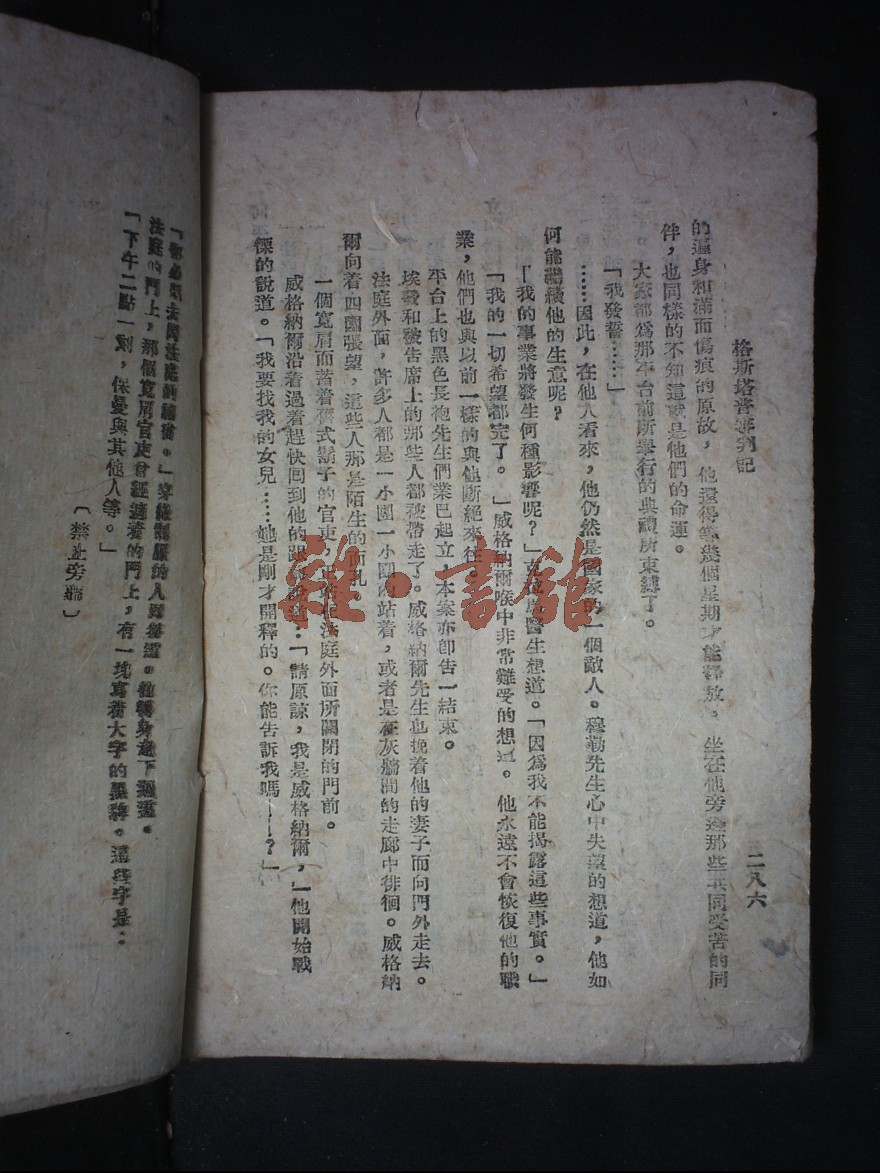 格斯塔普審判記
二八六
的遍身和滿面傷痕的原故，他還得等幾個星期才能釋放。坐在他旁邊那些共同受苦的同
伴，也同樣的不知道就是他們的命運。
大家都爲那平台前所舉行的典禮所束縛了。
「我發誓……」
……因此，在他人看來，他仍然是國家的一個敵人。穆勒先生心中失望的想道，他如
何能繼續他的生意呢？
「我的事業將發生何種影響呢？」克位馬醫生想道。「因爲我不能揭露這些事實。」
「我的一切希望都完了。」威格納爾喉中非常難受的想道。他永遠不會恢復他的職
業，他們也與以前一樣的與他斷絕來往。
平台上的黑色長袍先生們業已起立，本案亦卽告一結束。
埃發和被告席上的那些人都被帶走了。威格納爾先生也挽着他的妻子而向門外走去。
法庭外面，許多人都是一小團一小團的站着，或者是在灰牆間的走廊中徘徊。威格納
爾向着四圍張望，這些人都是陌生的面孔。
一個寬肩而蓄着舊式鬍子的官吏，正站在法庭外面所關閉的門前。
威格納爾沿着過着趕快囘到他的跟前說道：「請原諒，我是威格納爾，」他開始戰
慄的說道。「我要找我的女兒……她是剛才開釋的。你能告訴我嗎——？」
「你必須去問法庭的秘書。」穿綠制服的人囘答道。他轉身走下過道。
法庭的門上，那個寬肩官吏曾經擋着的門上，有一塊寫着大字的黑牌。這些字是：
「下午二點一刻，保曼與其他人等。」
〔禁止旁聽〕
雜·書館